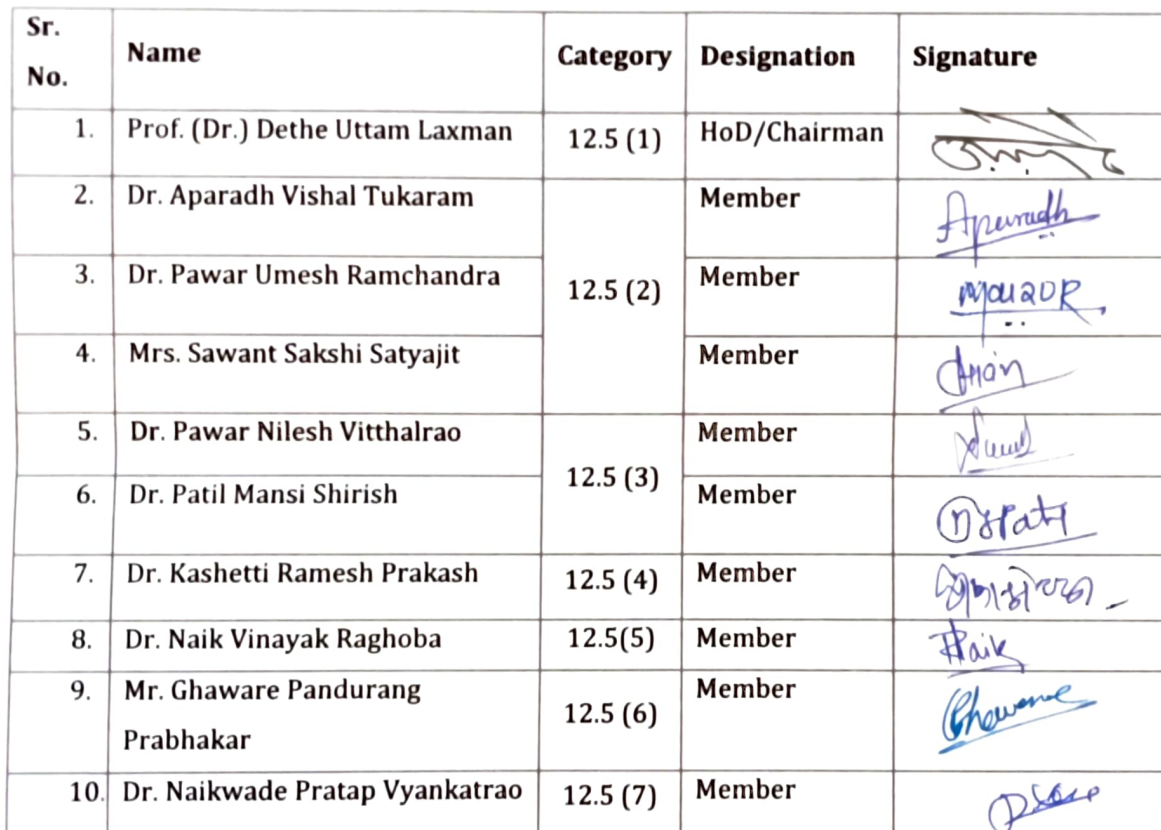 Sr.
No.
Name
Category
Designation
Signature
1.
Prof. (Dr.) Dethe Uttam Laxman
12.5 (1)
HoD/Chairman
2.
Dr. Aparadh Vishal Tukaram
12.5 (2)
Member
Aparadh
3.
Dr. Pawar Umesh Ramchandra
Member
4.
Mrs. Sawant Sakshi Satyajit
Member
5.
Dr. Pawar Nilesh Vitthalrao
12.5 (3)
Member
6.
Dr. Patil Mansi Shirish
Member
7.
Dr. Kashetti Ramesh Prakash
12.5 (4)
Member
8.
Dr. Naik Vinayak Raghoba
12.5(5)
Member
9.
Mr. Ghaware Pandurang
Prabhakar
12.5 (6)
Member
10.
Dr. Naikwade Pratap Vyankatrao
12.5 (7)
Member